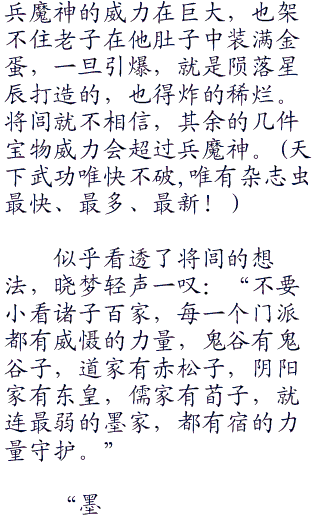 兵魔神的威力在巨大，也架
不住老子在他肚子中装满金
蛋，一旦引爆，就是陨落星
辰打造的，也得炸的稀烂。
将闾就不相信，其余的几件
宝物威力会超过兵魔神。(天
下武功唯快不破,唯有杂志虫
最快、最多、最新！)
似乎看透了将闾的想
法，晓梦轻声一叹：“不要
小看诸子百家，每一个门派
都有威慑的力量，鬼谷有鬼
谷子，道家有赤松子，阴阳
家有东皇，儒家有荀子，就
连最弱的墨家，都有宿的力
量守护。”
“墨